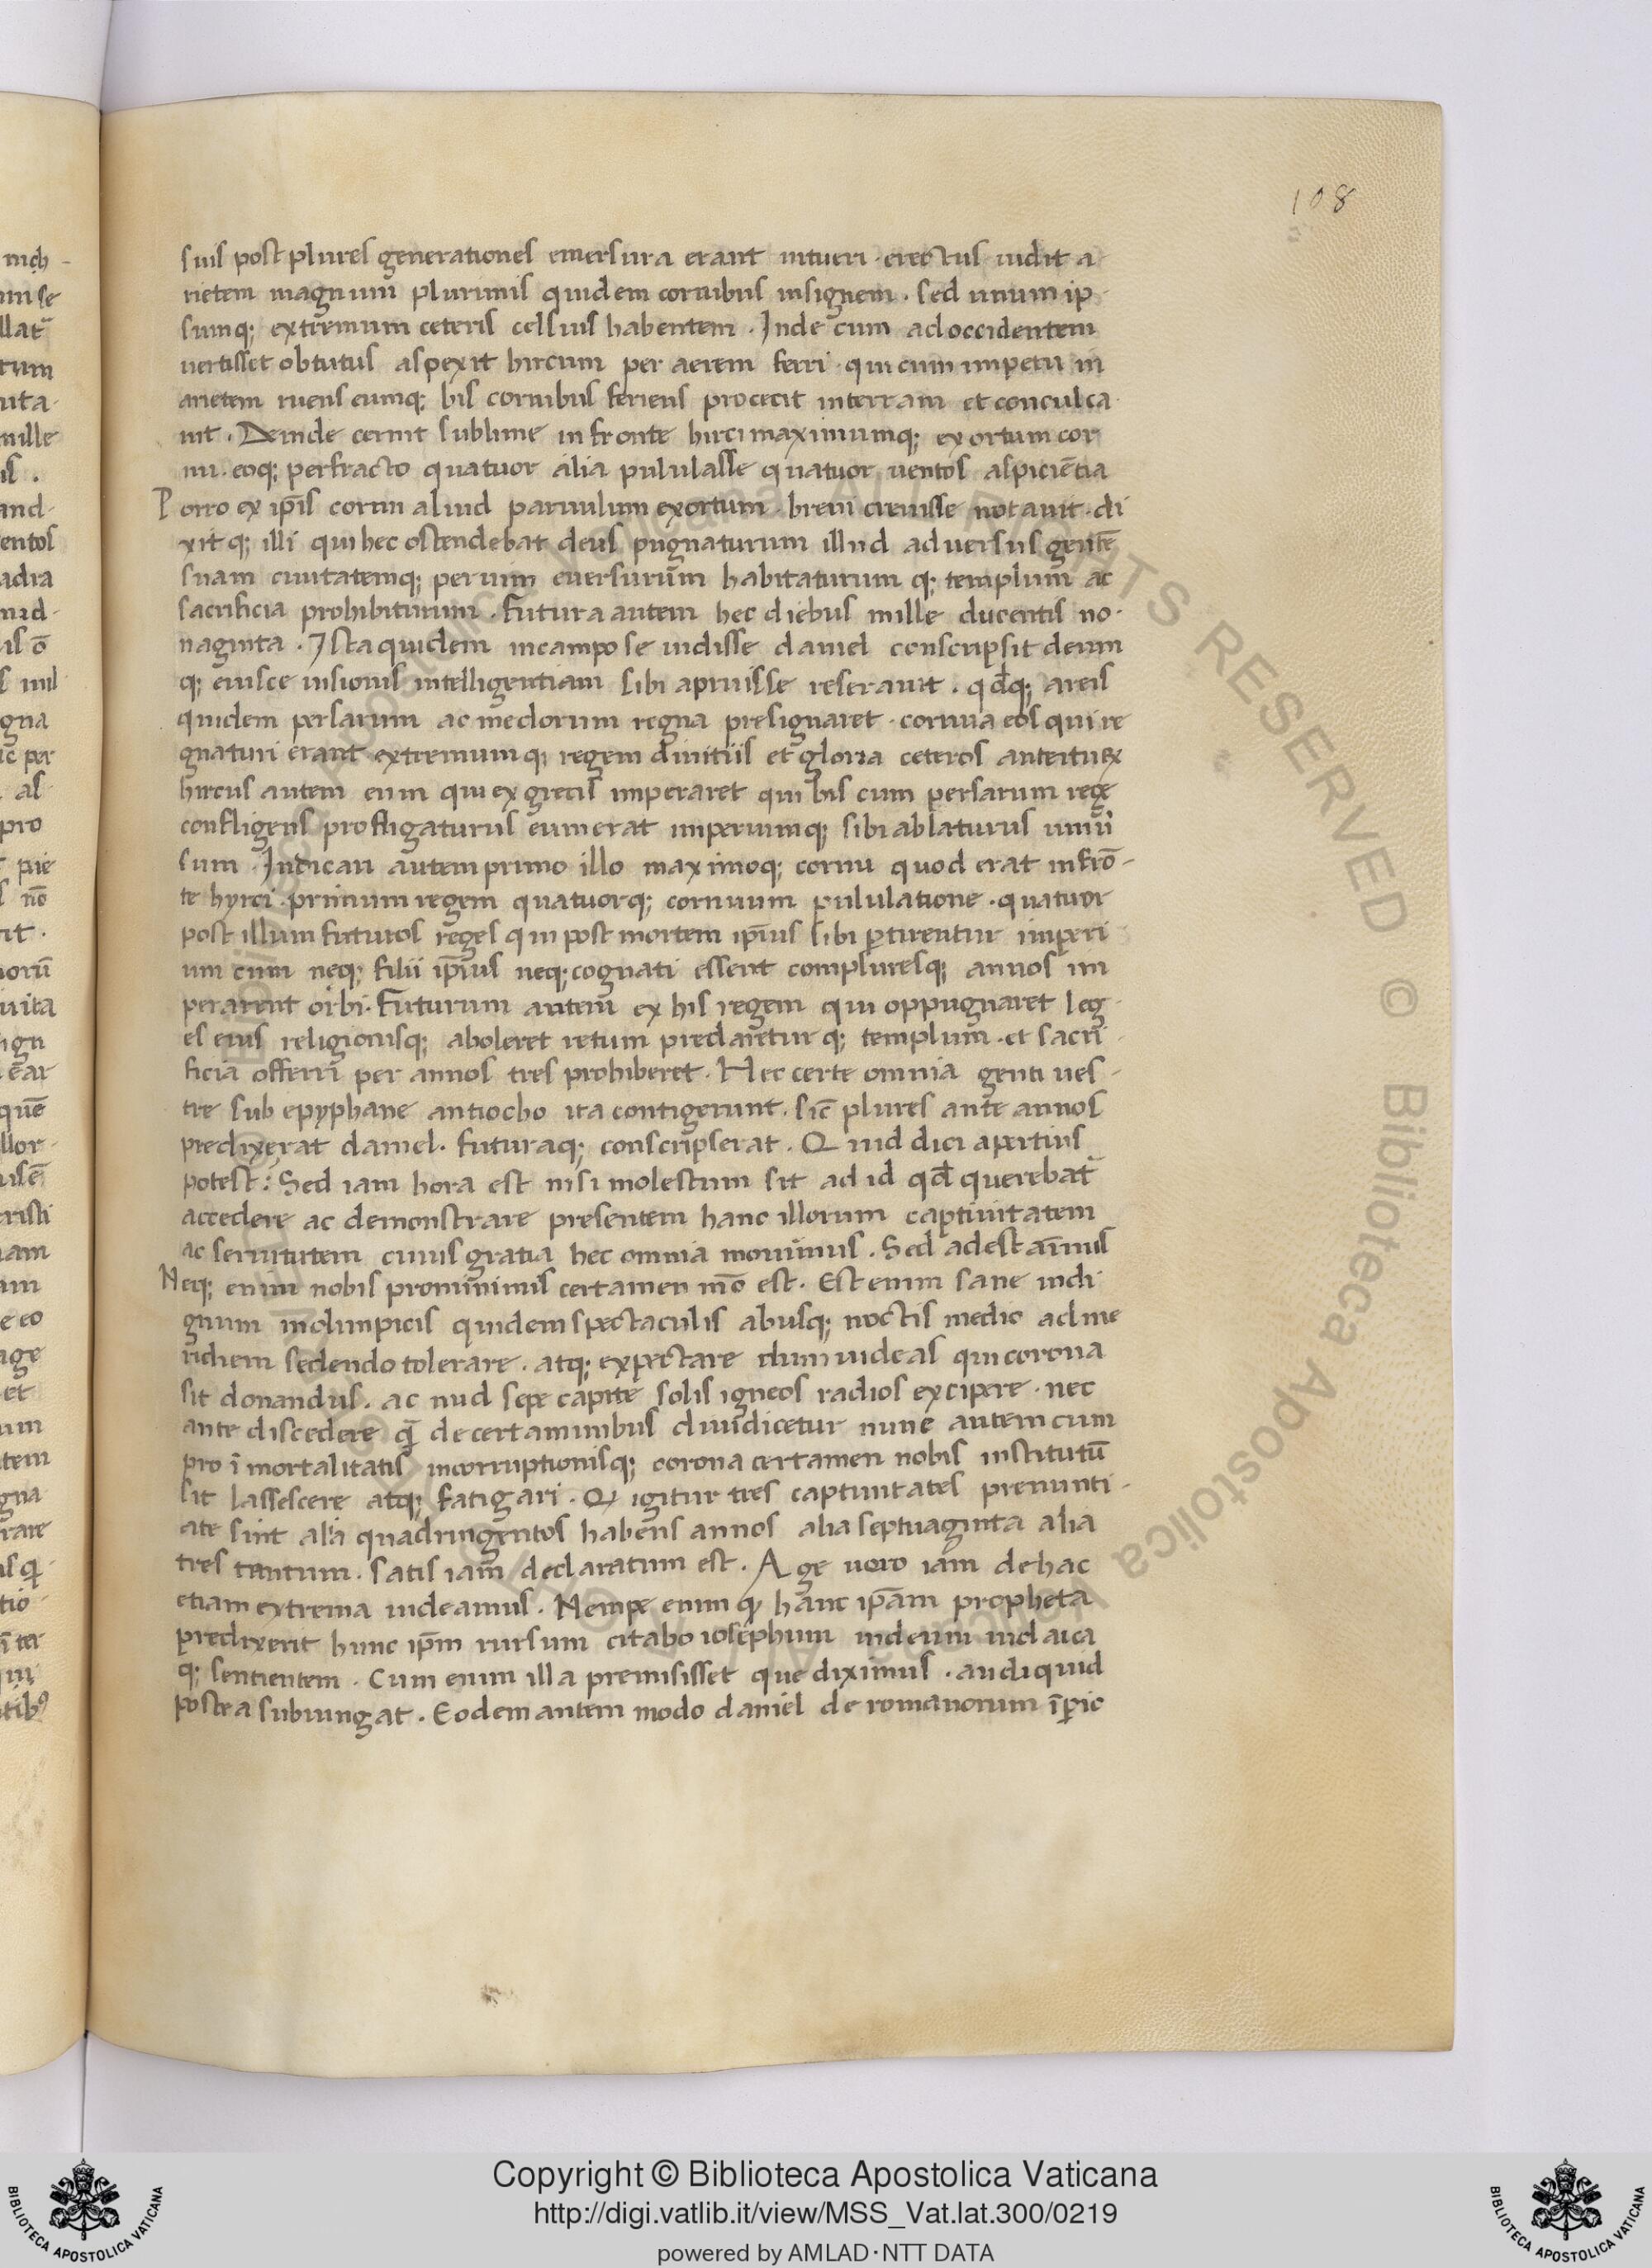 108
suis post plures generationes emersura erant intueri · erectus uidit a
rietem magnum plurimis quidem cornibus insignem · sed unum ip
sumq; extremum ceteris celsius habentem · Inde cum ad occidentem
uertisset obtutus aspexit hircum per aerem ferri · qui cum impetu in
arietem ruens eumq; bis cornibus feriens proiecit interram et conculca
uit · Deinde cernit sublime in fronte hirci maximumq; exortum cor
nu · eoq; perfracto quatuor alia pululasse quatuor uentos aspiciētia
Porro ex ip̄is cornu aliud paruulum exortum · breui creuisse notauit · di
xitq; illi qui hec ostendebat deus pugnaturum illud aduersus gentē
suam ciuitatemq; per uim euersurum habitaturumq; templum ac
sacrificia prohibiturum · Futura autem hec diebus mille ducentis no
naginta · Ista quidem incampo se uidisse daniel conscripsit deum
q; eiusce uisionis intelligentiam sibi apruisse reserauit · qd̄q; areis
quidem persarum ac medorum regna presignaret · cornua eos qui re
gnaturi erant extremumq; regem diuitiis et gloria ceteros anteiturx
hircus autem eum qui ex grecis imperaret qui bis cum persarum rege
confligens profligaturus eum erat imperiumq; sibi ablaturus uniū
sum · Indicari autem primo illo maximoq; cornu quod erat infrō-
te hyrci · primum regem quatuorq; cornuum pululatione · quatuor
post illum futuros reges qui post mortem ip̄ius sibi ꝑtirentur imperi
um cum neq; filii ip̄ius neq; cognati essent compluresq; annos im
perarent orbi · Futurum autem ex his regem qui oppugnaret leg
es eius religionisq; aboleret retum predaretur q; templum · et sacri
ficia offerri per annos tres prohiberet · Hec certe omnia genti ues-
tre sub epyphane antiocho ita contigerunt · sic̄ plures ante annos
predixerat daniel · futuraq; conscripserat · Quid dici apertius
potest: Sed iam hora est nisi molestum sit ad id qd̄ querebat̄
accedere ac demonstrare presentem hanc illorum captiuitatem
ac seruitutem cuius gratia hec omnia mouimus · Sed adest aīmis
Neq; enim nobis prominimis certamen mō est · Est enim sane indi
gnum inolimpicis quidem spectaculis abusq; noctis medio adme
ridiem sedendo tolerare · atq; expectare dum uideas qui corona
sit donandus · ac nud sepe capite solis igneos radios excipere · nec
ante discedere q̄ de certaminibus diuidicetur nunc autem cum
pro īmortalitatis incorruptionisq; corona certamen nobis institutū
sit lassescere atq; fatigari · Q igitur tres captiuitates prenunti-
ate sint alia quadringentos habens annos alia septuaginta alia
tres tantum · satis iam declaratum est · Age uero iam de hac
etiam extrema uideamus · Nempe enim qꝫ hanc ip̄am propheta
predixerit hunc ip̄m rursum citabo iosephum iudeum iudaica
q; sentientem · Cum enim illa premisisset que diximus · audi quid
postea subiungat · Eodem autem modo daniel de romanorum īꝑio
Copyright © Biblioteca Apostolica Vaticana
http://digi.vatlib.it/view/MSS_Vat.lat.300/0219
powered by AMLAD·NTT DATA